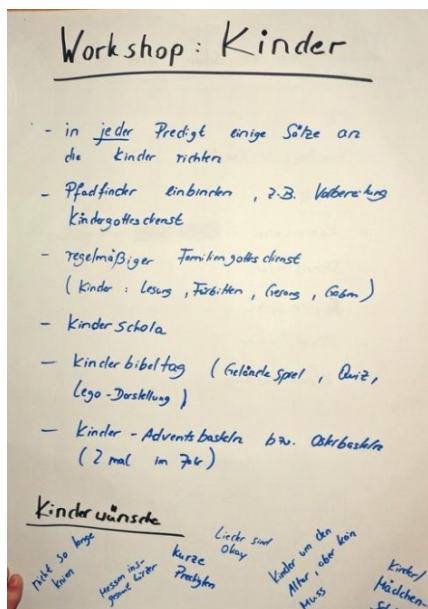 Workshop: Kinder
- in jeder Predigt einige Sätze an
die Kinder richten
- Pfadfinder einbinden, z.B. Vorbereitung
Kindergottesdienst
- regelmäßiger Familiengottesdienst
(Kinder: Lesung, Fürbitten, Gesang, Gaben)
- Kinderschola
- Kinderbibeltag (Geländespiel, Quiz,
Lego-Darstellung)
- Kinder-Adventsbasteln bzw. Osterbasteln
(2 mal im Jahr)
Kinderwünsche
nicht so lange
knien
Messen ins-
gesamt kürzer
kurze
Predigten
Lieder sind
Okay
Kinder um den
Altar, aber kein
Muss
Kinder/
Mädchen-